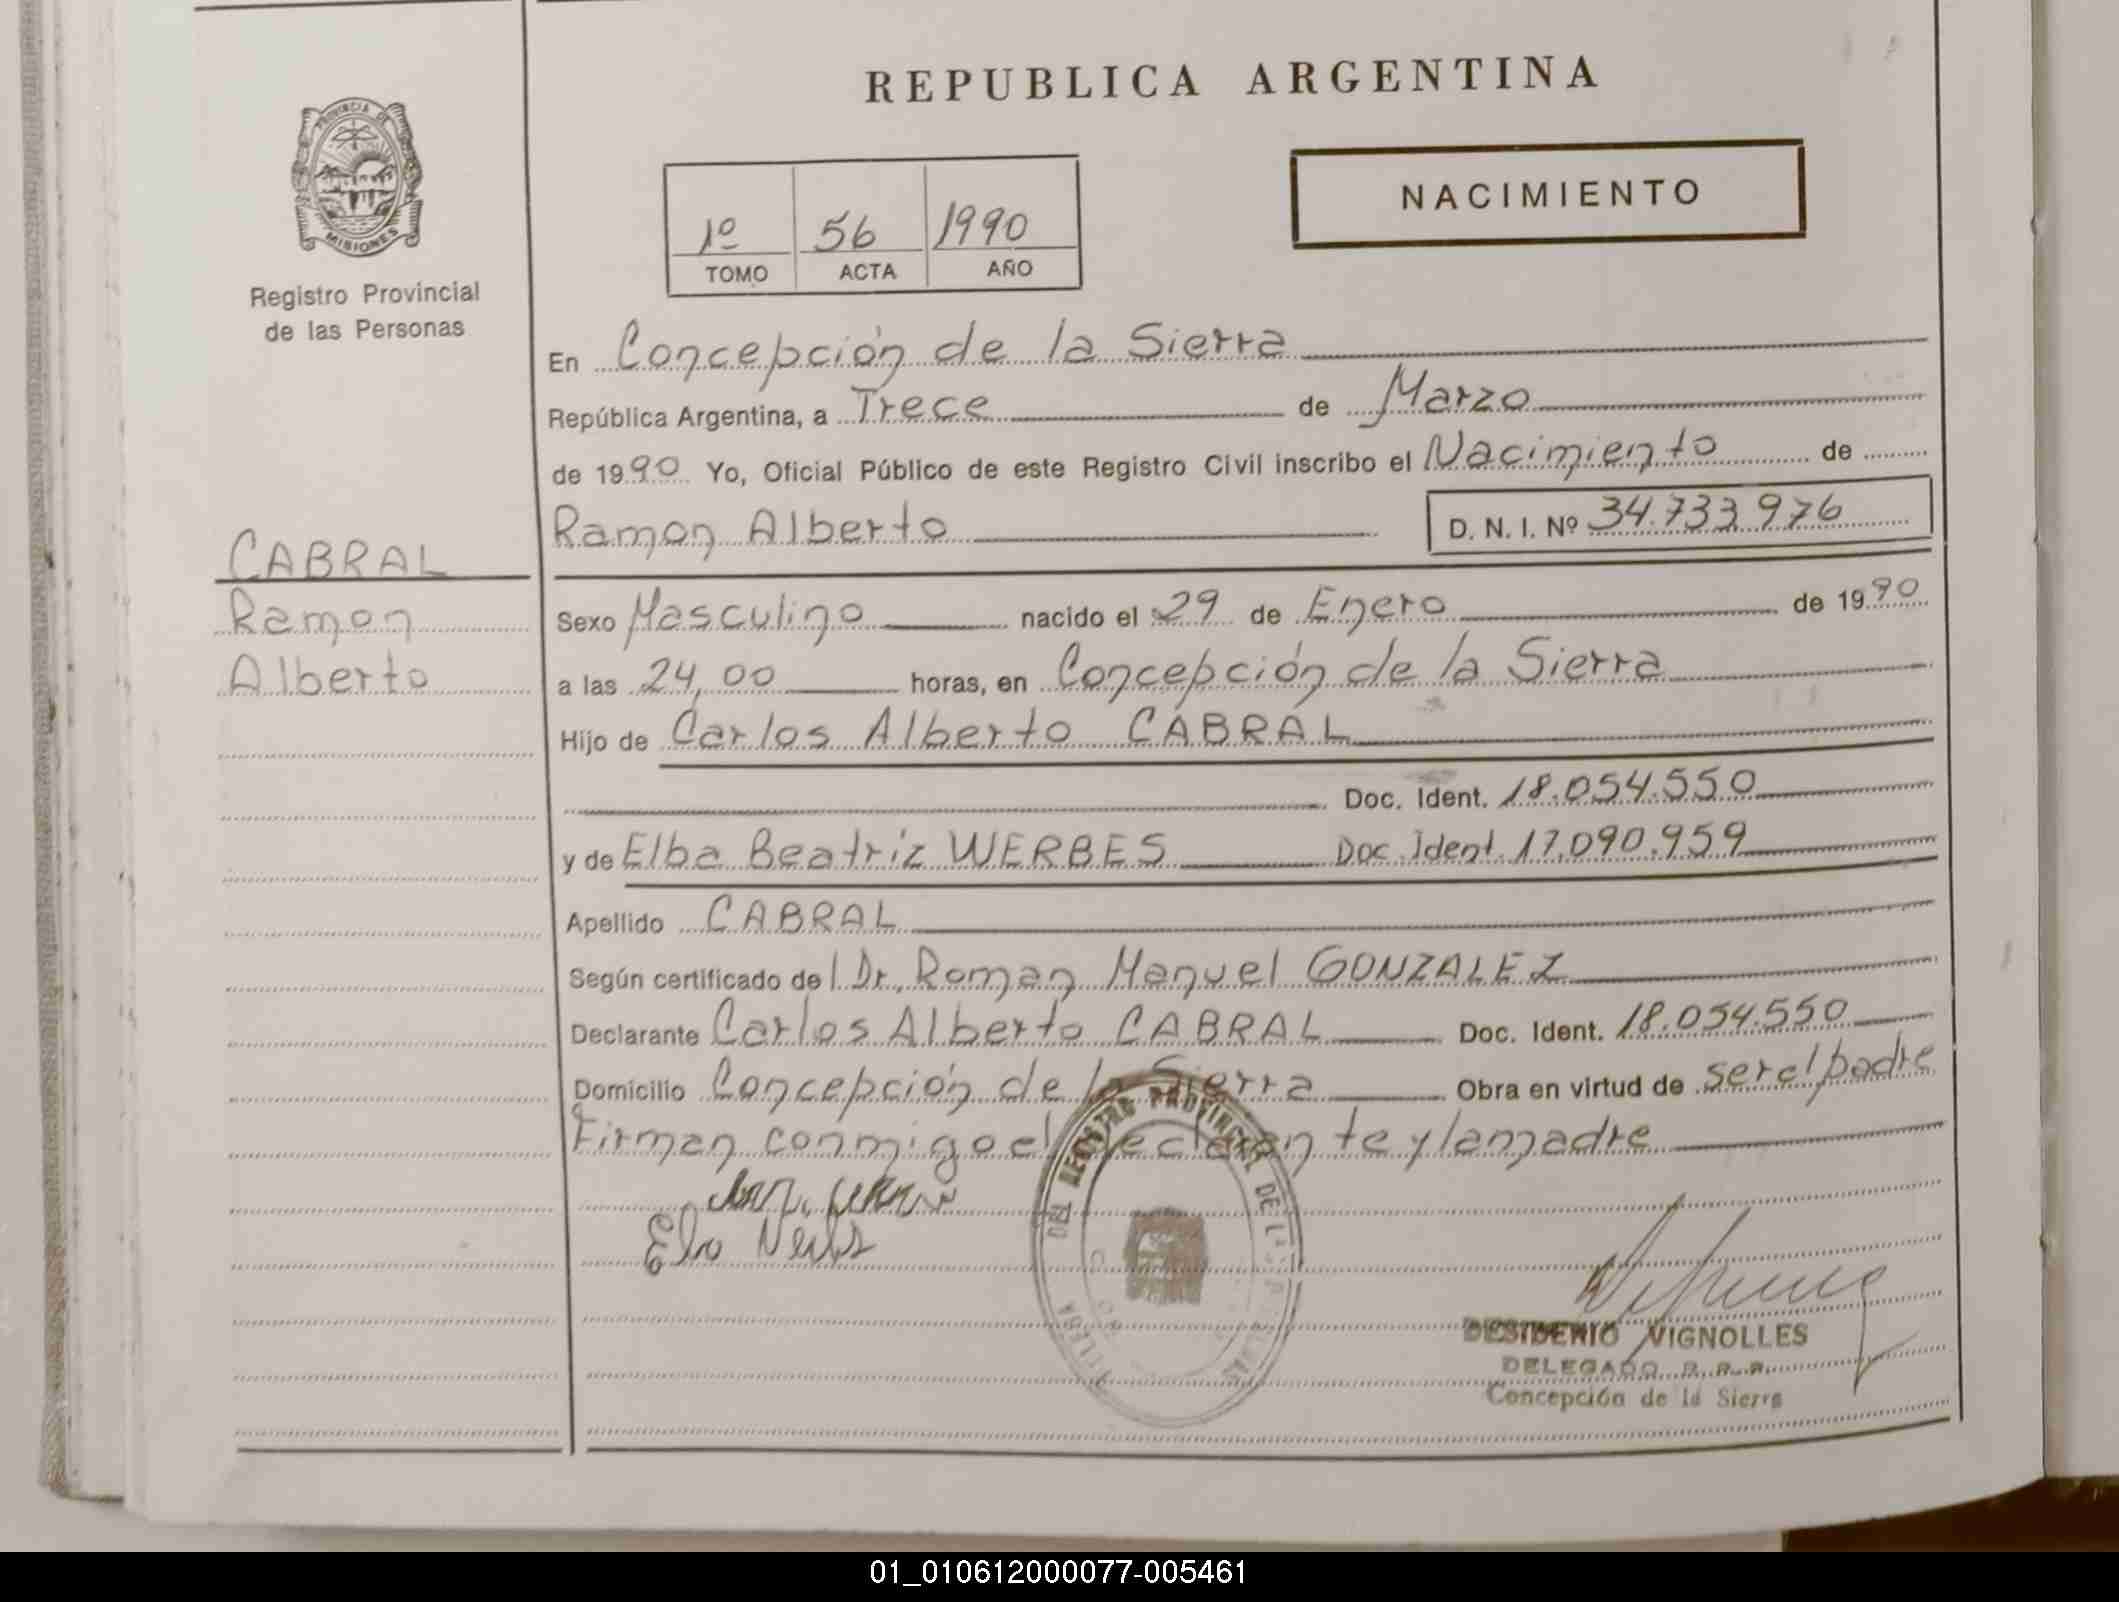 REPUBLICA ARGENTINA
PROVINCIA DE
MISIONES
Registro Provincial
de las Personas
NACIMIENTO
1º 56 1990
TOMO ACTA AÑO
En Concepción de la Sierra
República Argentina, a Trece de Marzo
de 1990 Yo, Oficial Público de este Registro Civil inscribo el Nacimiento de
Ramon Alberto D. N. I. Nº 34.733.976
CABRAL
Ramon
Alberto
Sexo Masculino nacido el 29 de Enero de 1990
a las 24,00 horas, en Concepción de la Sierra
Hijo de Carlos Alberto CABRAL
Doc. Ident. 18.054.550
y de Elba Beatriz WERBES Doc. Ident. 17.090.959
Apellido CABRAL
Según certificado del Dr. Roman Manuel GONZALEZ
Declarante Carlos Alberto CABRAL Doc. Ident. 18.054.550
Domicilio Concepción de la Sierra Obra en virtud de ser el padre
Firman conmigo el declarante y la madre
DEL REGISTRO PROVINCIAL DE LAS
DESIDERIO VIGNOLLES
DELEGADO R. P. P.
Concepción de la Sierra
01_010612000077-005461